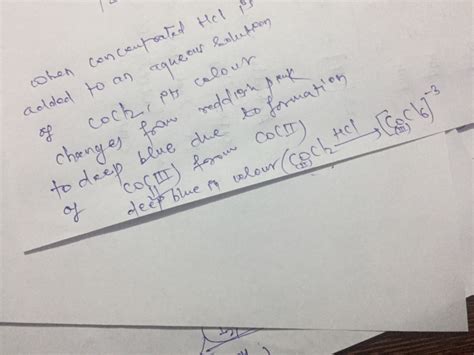 when concentrated Hcl is
added to an aqueous solution
of CoCl2, its colour
changes from reddish pink
to deep blue due to formation
of CO(III) from CO(II)
deep blue colour (CoCl2 HCl → [CoCl6]-3
(II) (III)